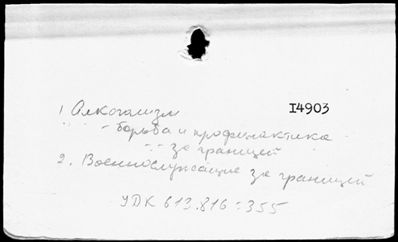 I4903
1 Алкоголизм
" - борьба и профилактика
" - за границей
2. Военнослужащие за границей
УДК 613.816:355